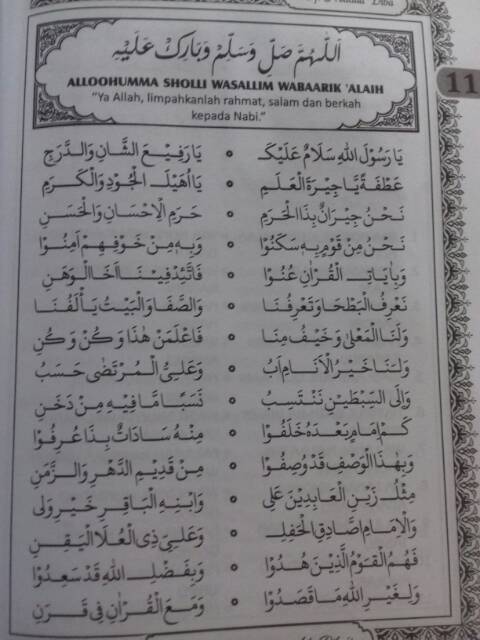 اَللّٰهُمَّ صَلِّ وَسَلِّمْ وَبَارِكْ عَلَيْهِ
ALLOOHUMMA SHOLLI WASALLIM WABAARIK 'ALAIH
"Ya Allah, limpahkanlah rahmat, salam dan berkah
kepada Nabi."
11
يَا رَسُوْلَ اللهِ سَلَامٌ عَلَيْكَ ۰ يَا رَفِيْعَ الشَّانِ وَالدَّرَجِ
عَطْفَةً يَّا جِيْرَةَ الْعَلَمِ ۰ يَا اُهَيْلَ الْجُوْدِ وَالْكَرَمِ
نَحْنُ جِيْرَانٌ بِذَا الْحَرَمِ ۰ حَرَمِ الْاِحْسَانِ وَالْحَسَنِ
نَحْنُ مِنْ قَوْمٍ بِهِ سَكَنُوْا ۰ وَبِهِ مِنْ خَوْفِهِمْ اَمِنُوْا
وَبِاٰيَاتِ الْقُرْاٰنِ عُنُوْا ۰ فَاتَّئِدْ فِيْنَا اَخَا الْوَهَنِ
نَعْرِفُ الْبَطْحَا وَتَعْرِفُنَا ۰ وَالصَّفَا وَالْبَيْتُ يَأْلَفُنَا
وَلَنَا الْمَعْلٰى وَخَيْفُ مِنَا ۰ فَاعْلَمَنْ هٰذَا وَكُنْ وَكُنِ
وَلَنَا خَيْرُ الْاَنَامِ اَبُ ۰ وَعَلِيُّ الْمُرْتَضٰى حَسَبُ
وَاِلَى السِّبْطَيْنِ نَنْتَسِبُ ۰ نَسَبًا مَّا فِيْهِ مِنْ دَخَنِ
كَمْ اِمَامٍ بَعْدَهُ خَلَفُوْا ۰ مِنْهُ سَادَاتٌ بِذَا عُرِفُوْا
وَبِهٰذَا الْوَصْفِ قَدْ وُصِفُوْا ۰ مِنْ قَدِيْمِ الدَّهْرِ وَالزَّمَنِ
مِثْلُ زَيْنِ الْعَابِدِيْنَ عَلِي ۰ وَابْنِهِ الْبَاقِرِ خَيْرِ وَلِي
وَالْاِمَامِ الصَّادِقِ الْحَفِلِ ۰ وَعَلِيٍّ ذِي الْعُلَا الْيَقِنِ
فَهُمُ الْقَوْمُ الَّذِيْنَ هُدُوْا ۰ وَبِفَضْلِ اللهِ قَدْ سَعِدُوْا
وَلِغَيْرِ اللهِ مَا قَصَدُوْا ۰ وَمَعَ الْقُرْاٰنِ فِيْ قَرَنِ